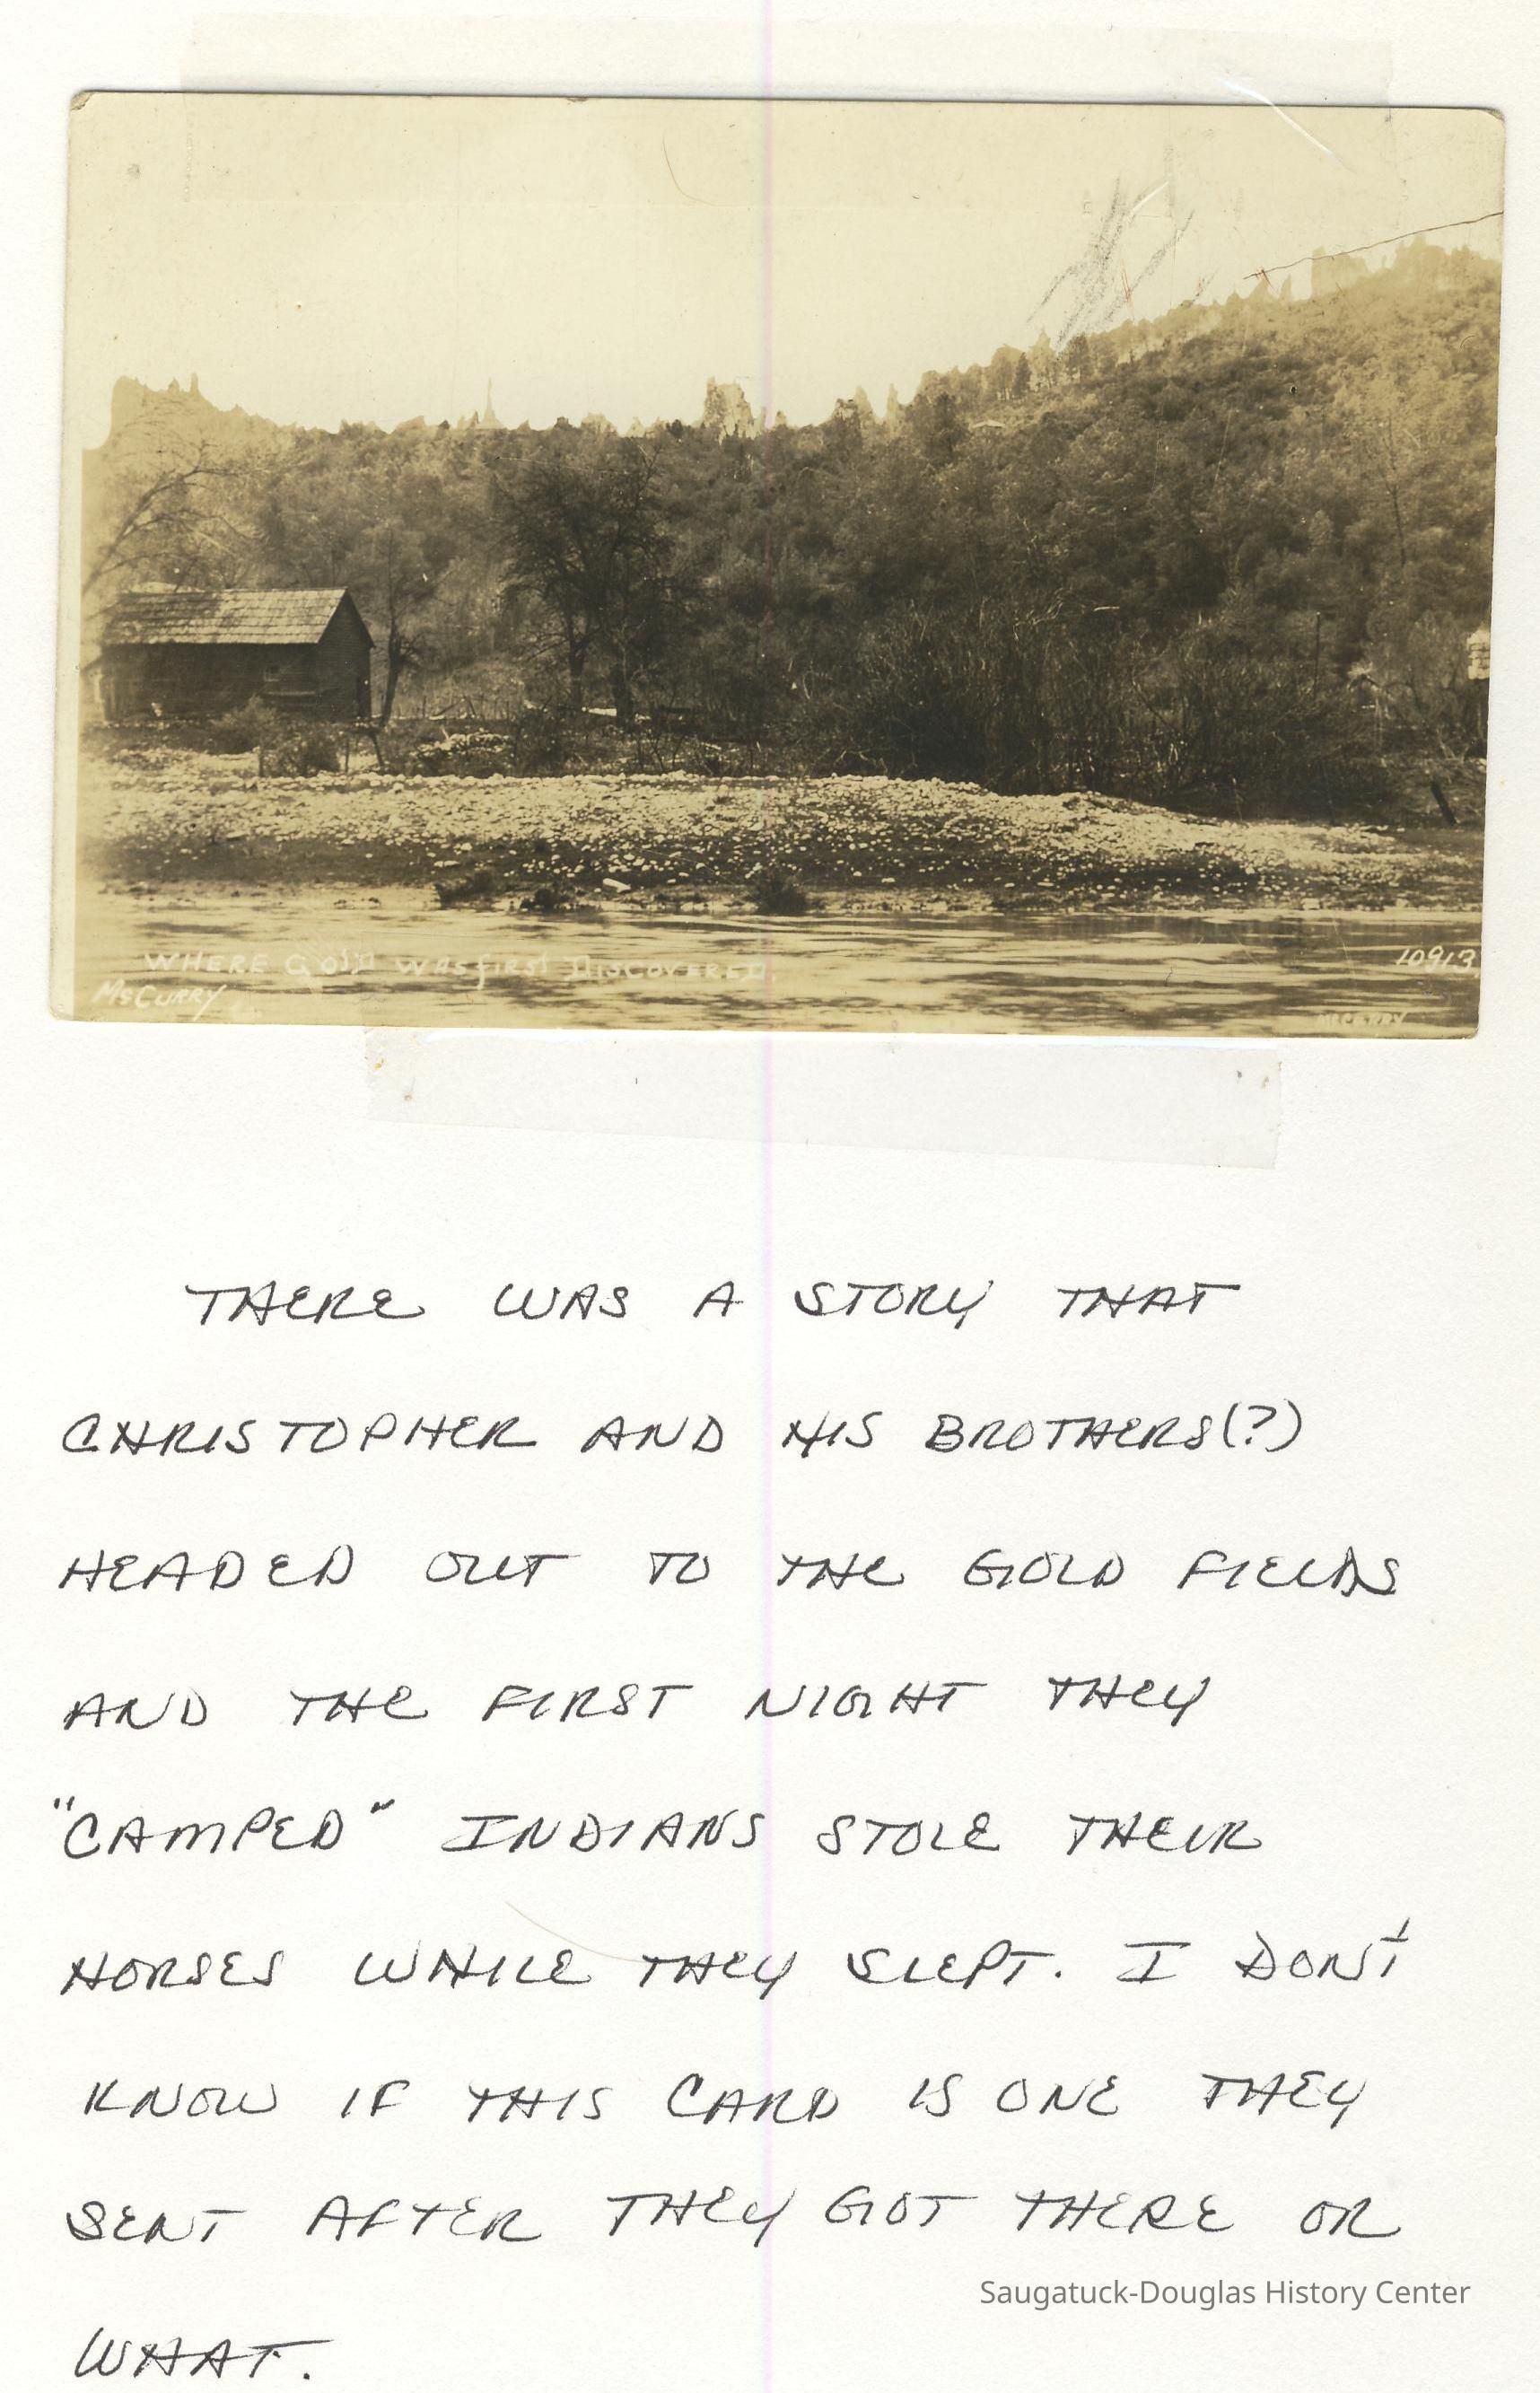 WHERE GOLD WAS FIRST DISCOVERED.
10913
McCURRY
McCURRY
THERE WAS A STORY THAT
CHRISTOPHER AND HIS BROTHERS(?)
HEADED OUT TO THE GOLD FIELDS
AND THE FIRST NIGHT THEY
"CAMPED" INDIANS STOLE THEIR
HORSES WHILE THEY SLEPT. I DON'T
KNOW IF THIS CARD IS ONE THEY
SENT AFTER THEY GOT THERE OR
Saugatuck-Douglas History Center
WHAT.